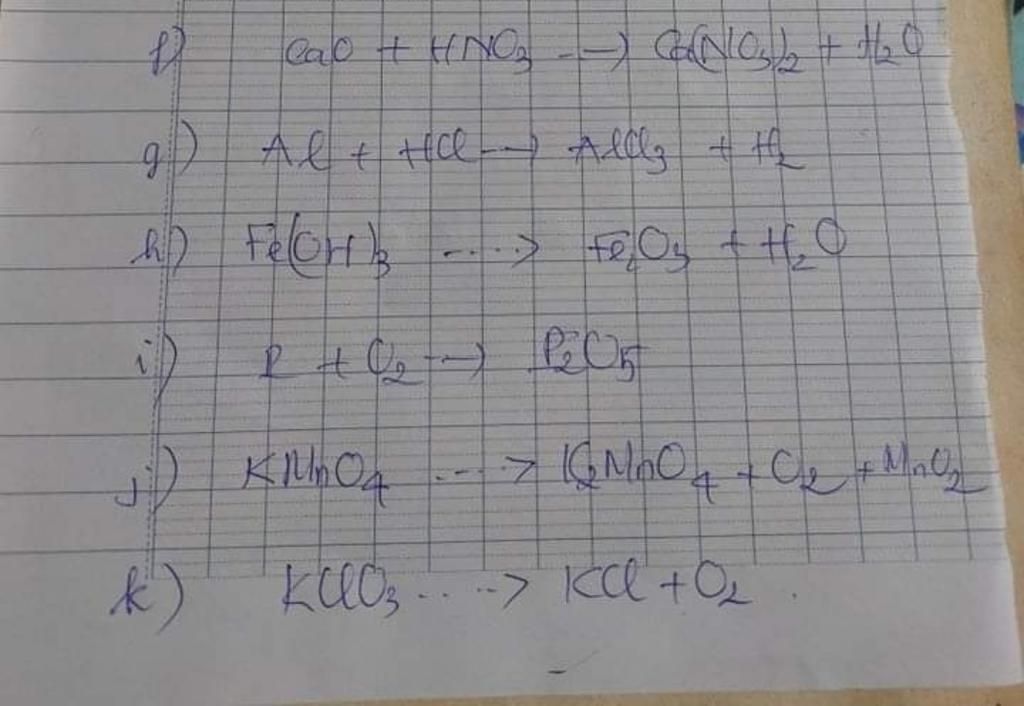 f) CaO + HNO3 --→ Ca(NO3)2 + H2O
g) Al + HCl --→ AlCl3 + H2
h) Fe(OH)3 ----→ Fe2O3 + H2O
i) P + O2 --→ P2O5
j) KMnO4 ---→ K2MnO4 + O2 + MnO2
k) KClO3 ----→ KCl + O2